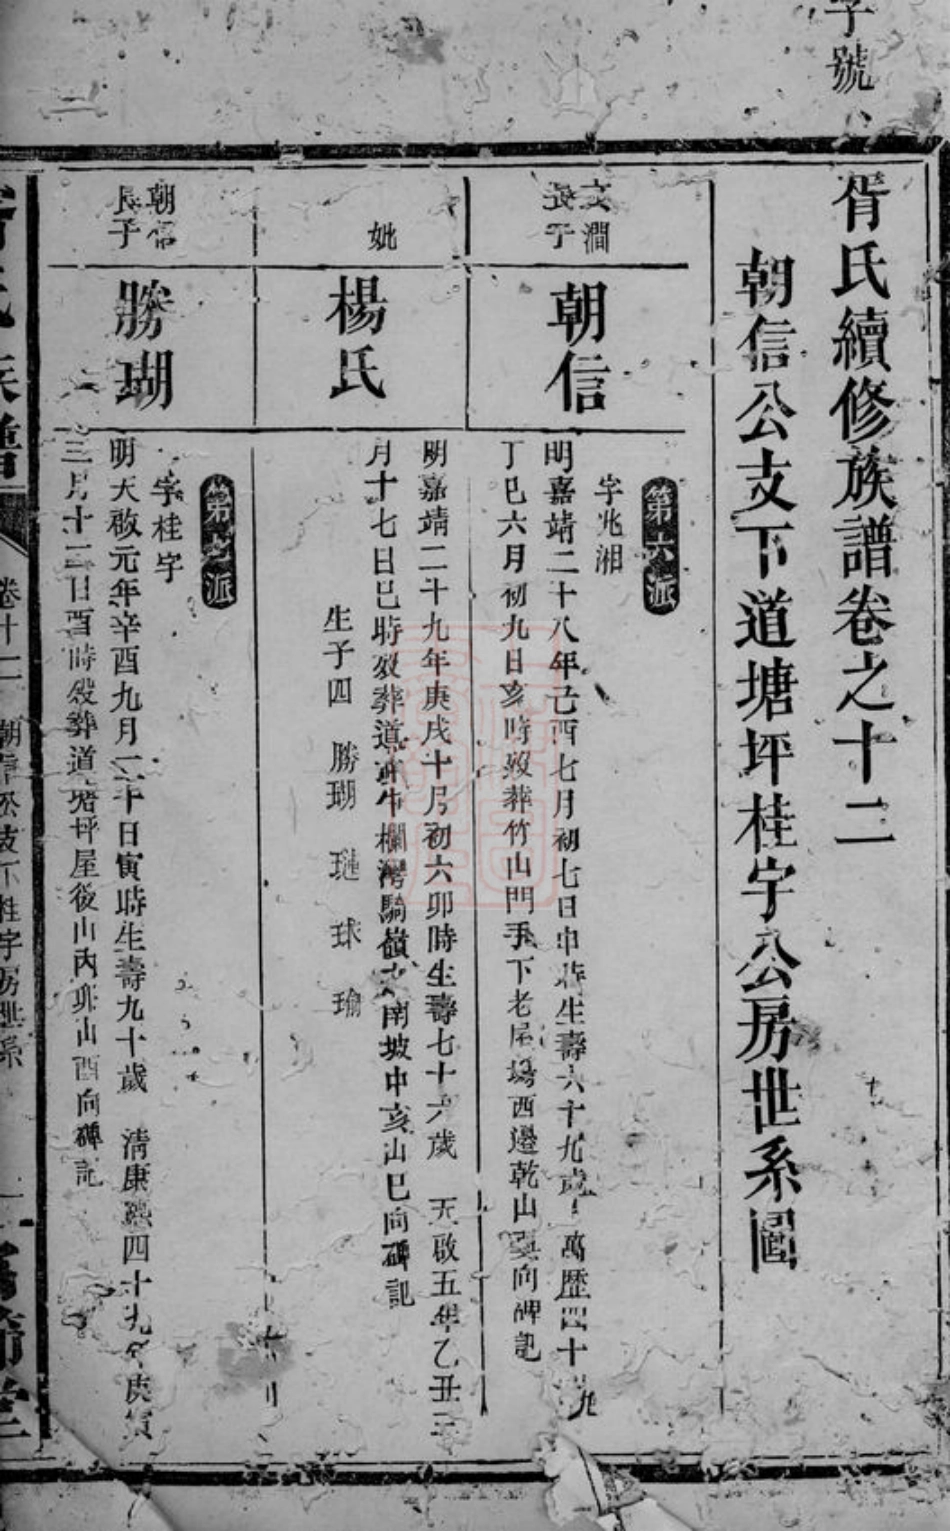 子號
胥氏續修族譜卷之十二
朝信公支下道塘坪桂字公房世系圖
文澗
長子
朝信
第六派
字兆湘
明嘉靖二十八年己酉七月初七日申時生壽六十九歲 萬歷四十九
丁巳六月初九日亥時歿葬竹山門手下老屋場西邊乾山巽向碑記
妣
楊氏
明嘉靖二十九年庚戌十月初六卯時生壽七十六歲 天啟五年乙丑三
月十七日巳時歿葬道 牛欄灣騎嶺 南坡中亥山巳向碑記
生子四 勝瑚 璉 球 瑜
朝信
長子
勝瑚
第七派
字桂字
明天啟元年辛酉九月二十日寅時生壽九十歲 清康熙四十九年庚寅
三月十三日酉時歿葬道塘坪屋後山內卯山酉向碑記
胥氏族譜
卷十二 朝信公支下桂字房世系